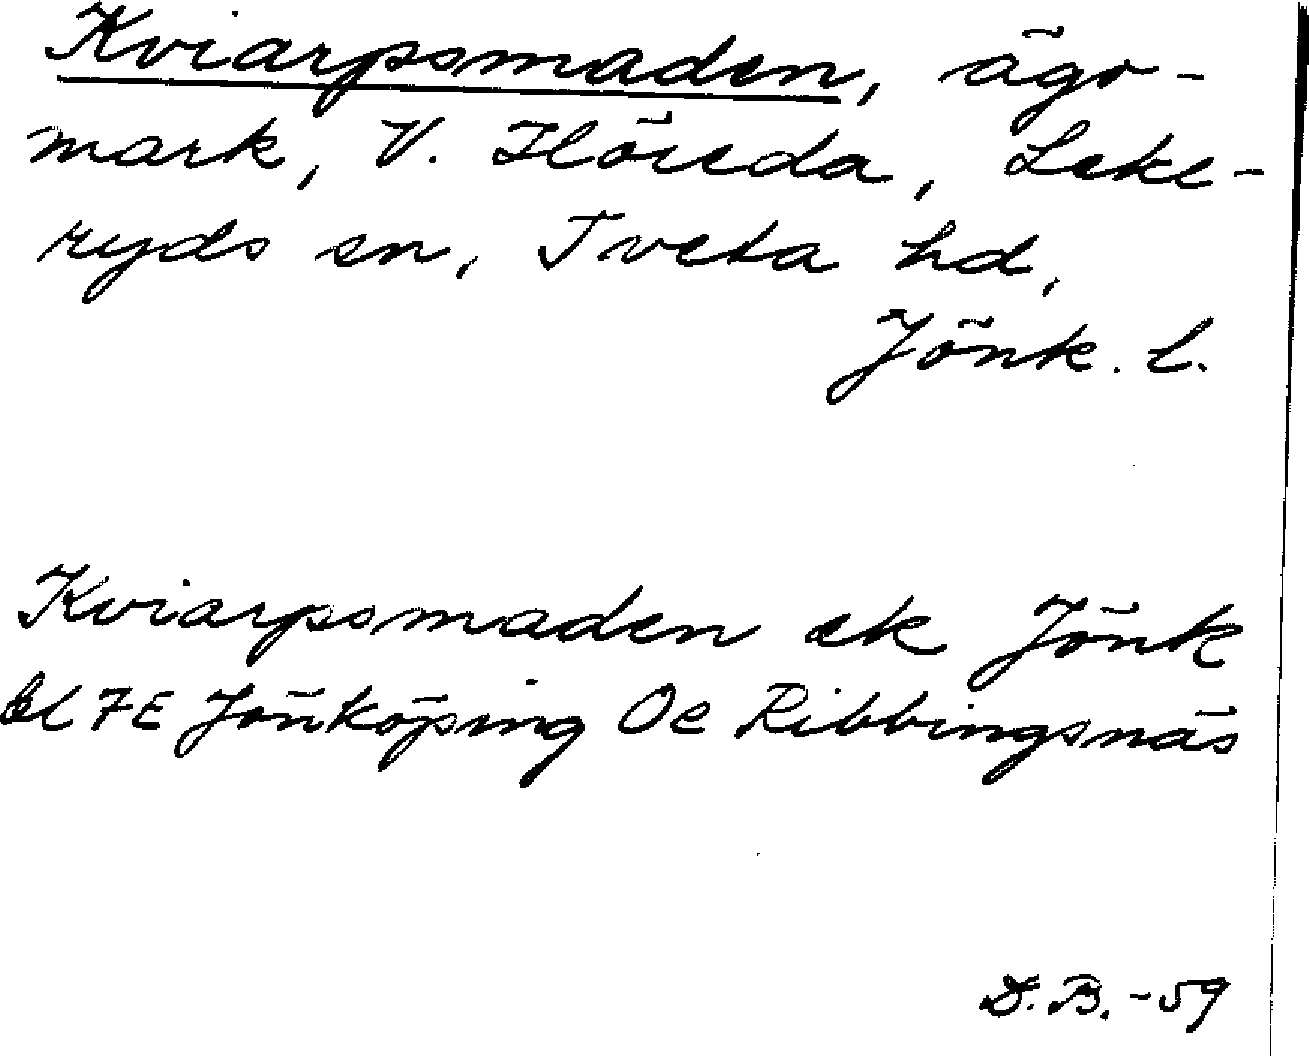 Kviarpsmaden, ägo-
mark, V. Flöreda, Leke-
ryds sn, Tveta hd,
Jönk. l.
Kviarpsmaden ek Jönk
bl 7E Jönköping Oc Ribbingsnäs
D.B. -59